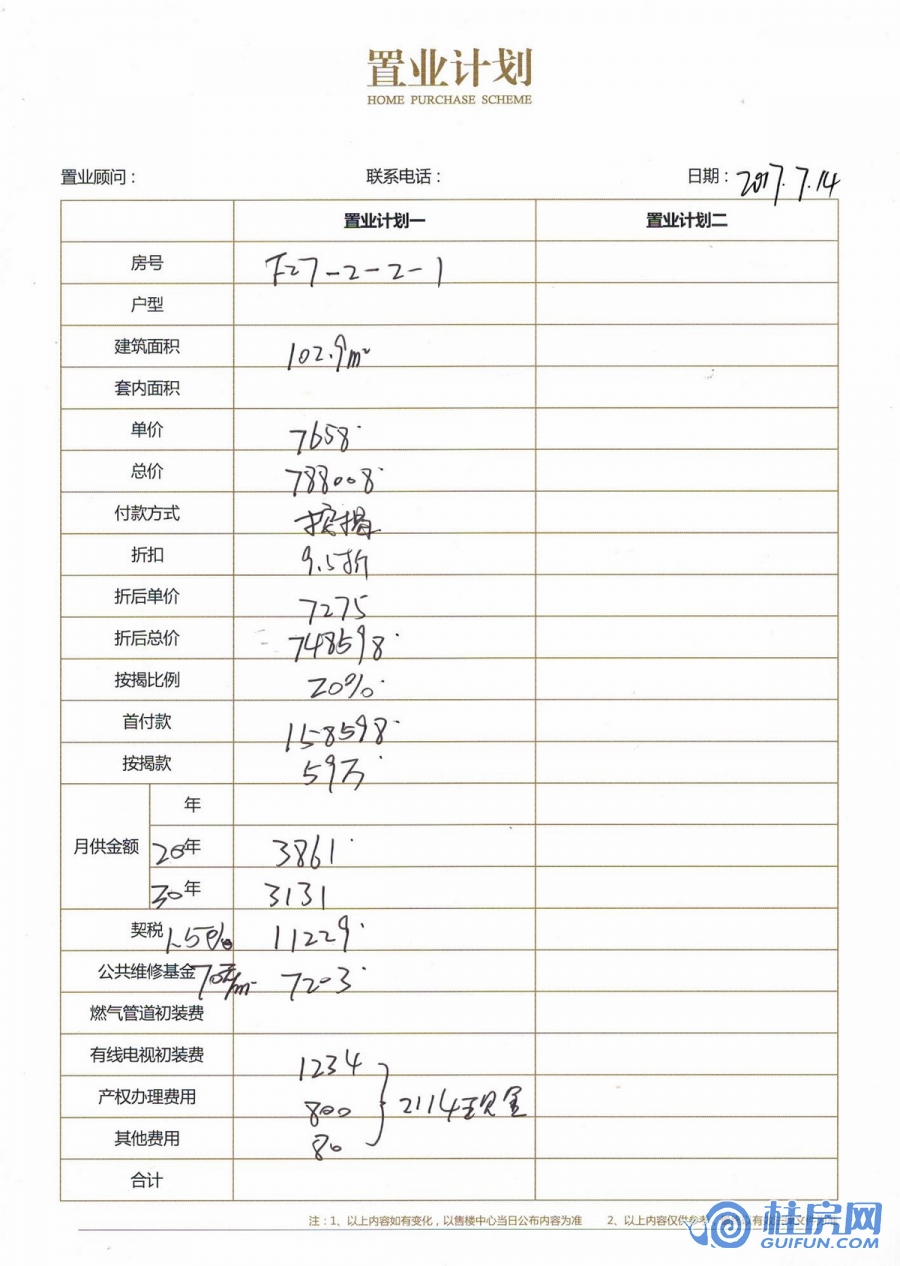 置业计划
HOME PURCHASE SCHEME
置业顾问： 联系电话： 日期：2017.7.14
置业计划一 置业计划二
房号 F27-2-2-1
户型
建筑面积 102.9m²
套内面积
单价 7658
总价 788008
付款方式 按揭
折扣 9.5折
折后单价 7275
折后总价 748598
按揭比例 20%
首付款 158598
按揭款 59万
月供金额 年
20年 3861
30年 3131
契税1.5% 11229
公共维修基金70元/m² 7203
燃气管道初装费
有线电视初装费 1234
产权办理费用 800 2114现金
其他费用 80
合计
注：1、以上内容如有变化，以售楼中心当日公布内容为准 2、以上内容仅供参考
桂房网
GUIFUN.COM